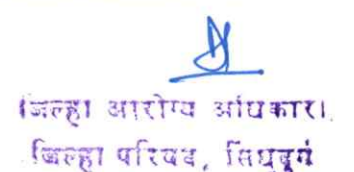 जिल्हा आरोग्य अधिकारी
जिल्हा परिषद, सिंधुदुर्ग